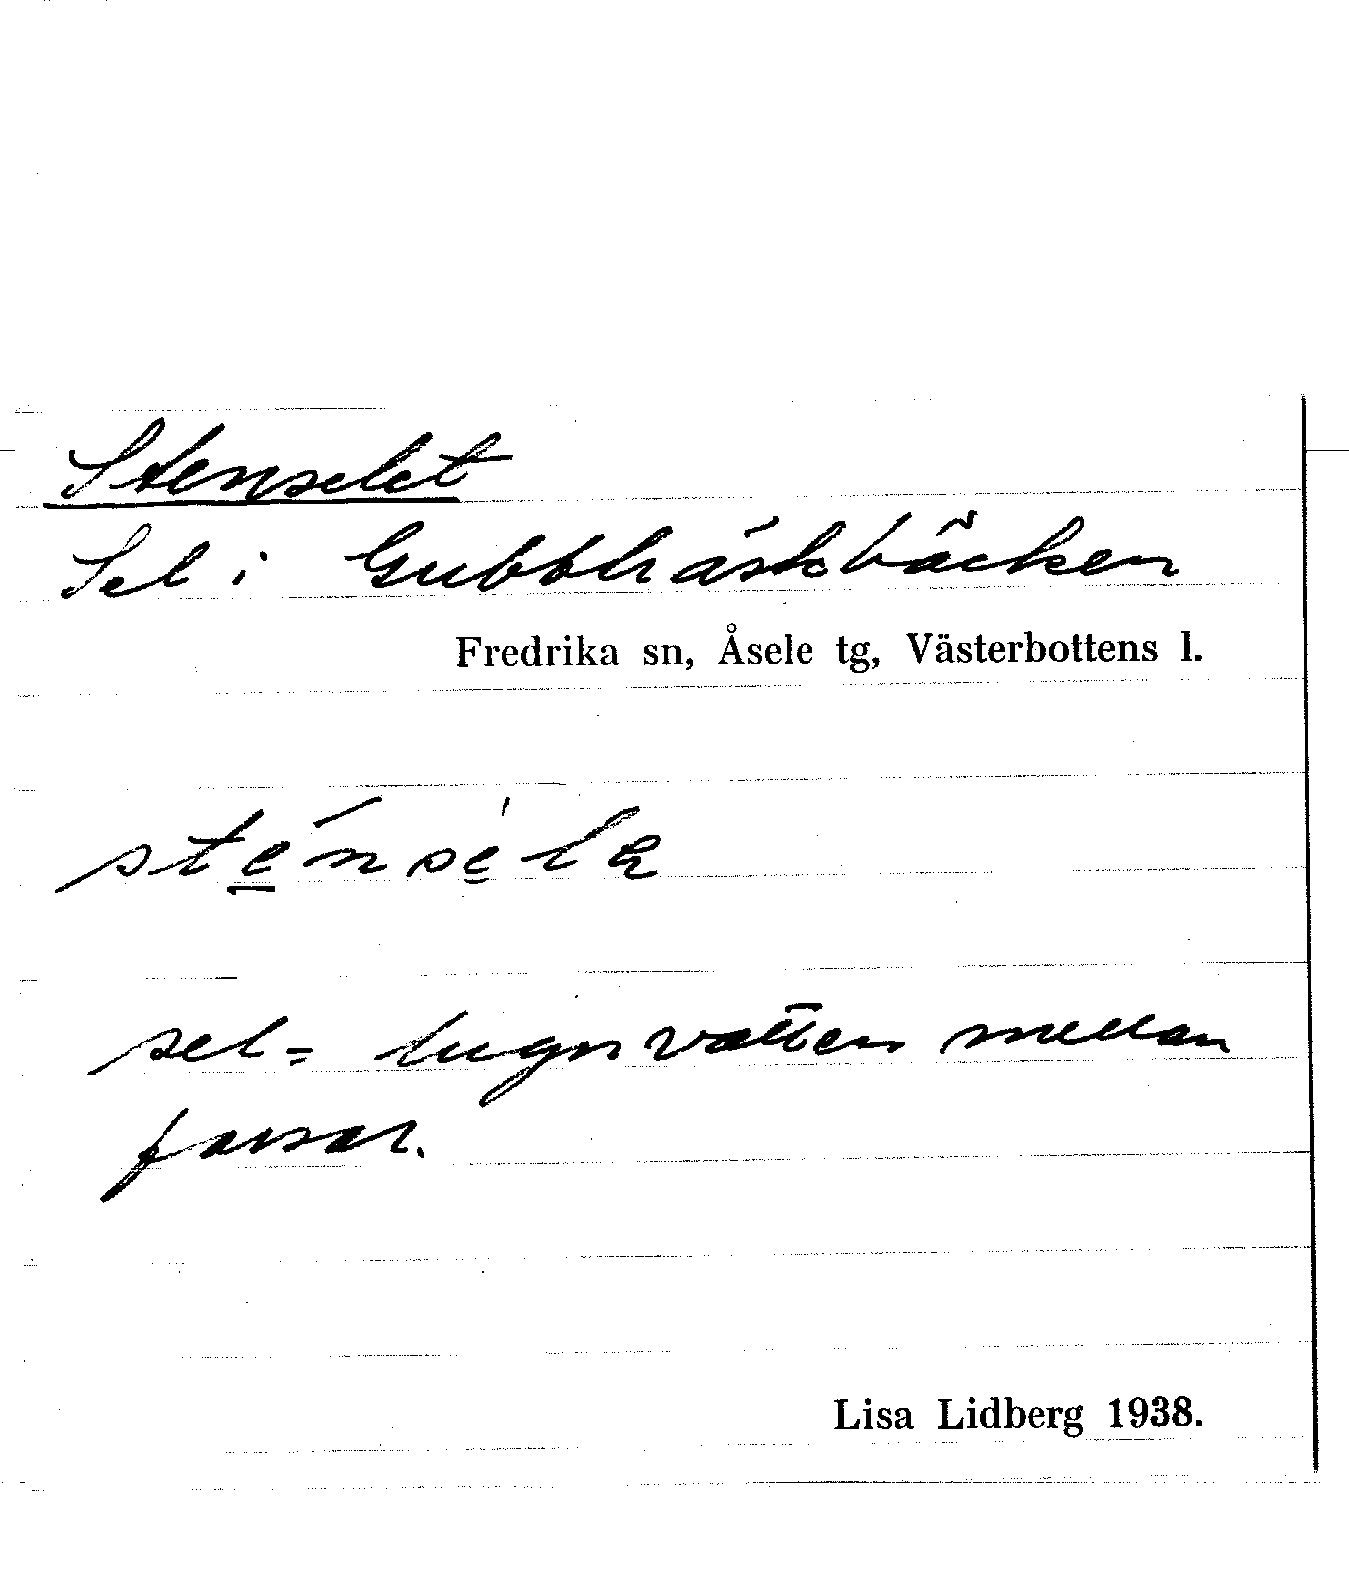 Stenselet
Sel i Gubbträskbäcken
Fredrika sn, Åsele tg, Västerbottens l.
sel = lugnvatten mellan
forsar.
Lisa Lidberg 1938.